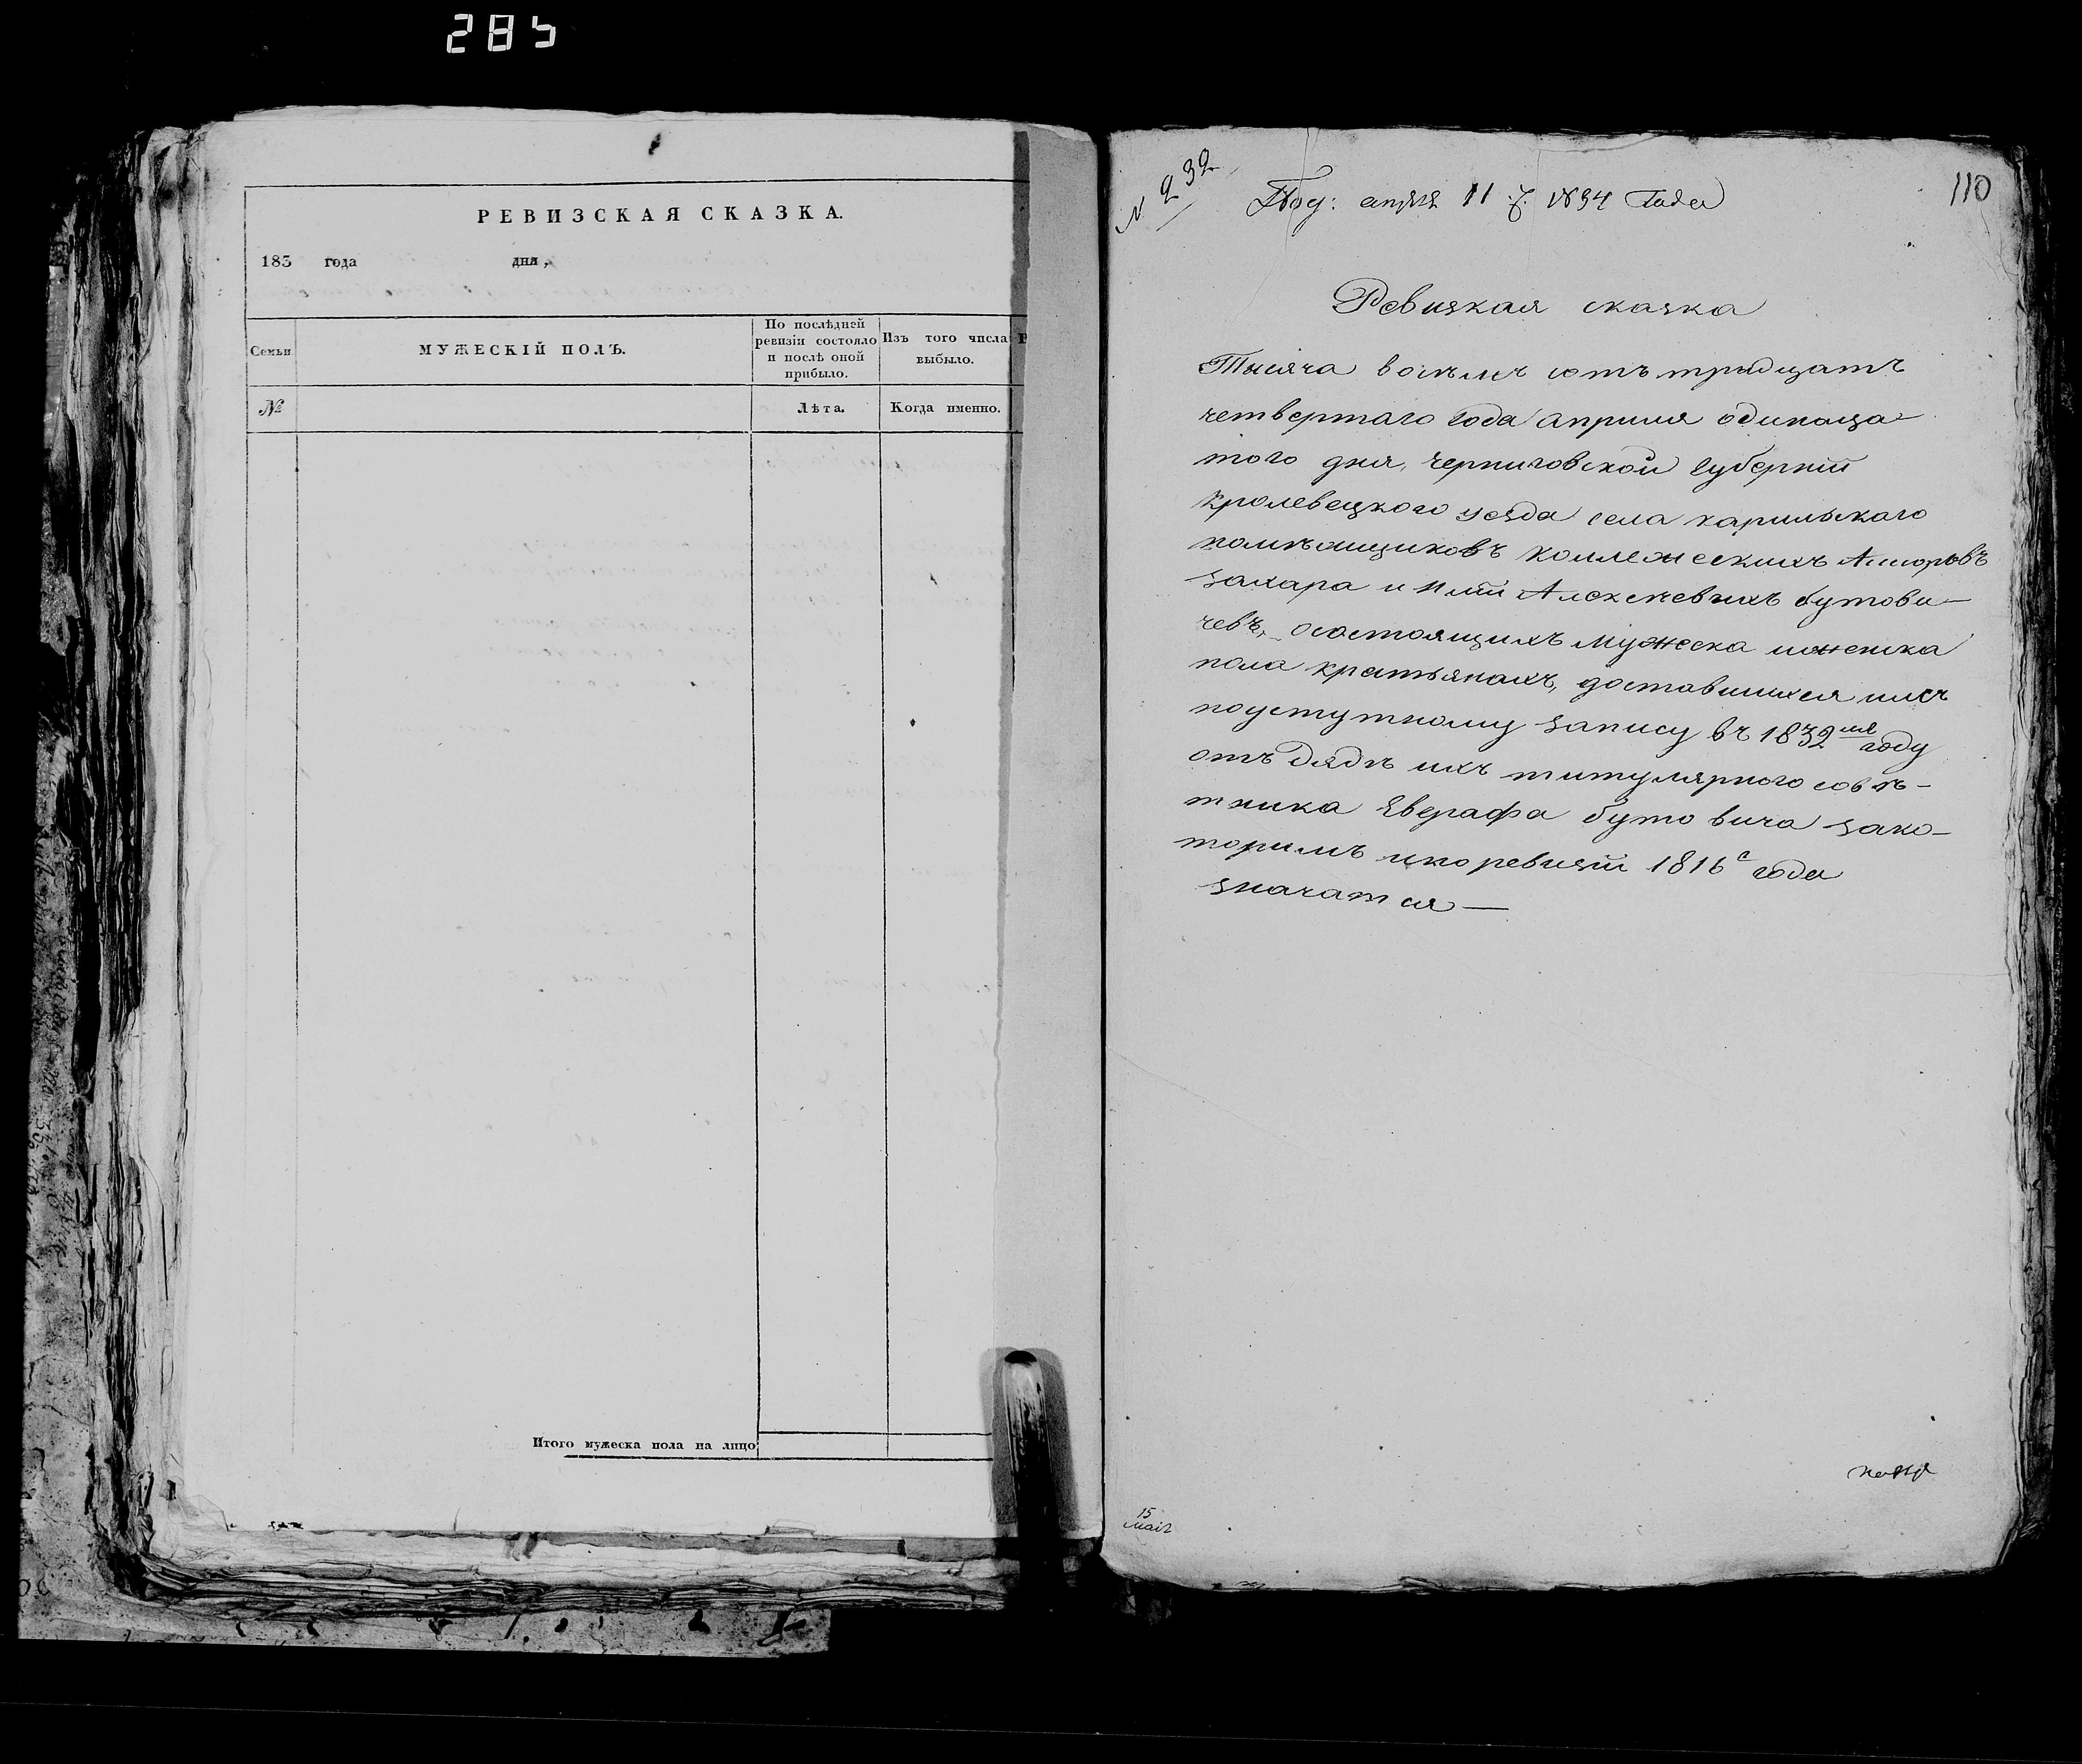 285
РЕВИЗСКАЯ СКАЗКА.
183 года дня,
Семьи
МУЖЕСКІЙ ПОЛЪ.
По послѣдней
ревизіи состояло
и послѣ оной
прибыло.
Изъ того числа
выбыло.
№
Лѣта.
Когда именно.
Итого мужеска пола на лицо
N 232
110
Под: апрѣля 11 д. 1834 Года
Ревизкая сказка
Тысяча восѣмъ сотъ тридцатъ
четвертаго года априля одинаца-
того дня, черниговской губерніи
Кролевецкого уезда села карильского
помѣщиковъ коллежскихъ Ассоровъ
захара и Иліи Алексеевихъ бутови-
чевъ, осостоящихъ мужеска иженска
пола крестьянахъ, доставшихся имъ
поуступному запису въ 1832мъ году
отъ дядѣ ихъ титулярного совѣ-
тника Еверафа бутовича зако-
торимъ ипоревизіи 1816г года
значатся —
15
маія